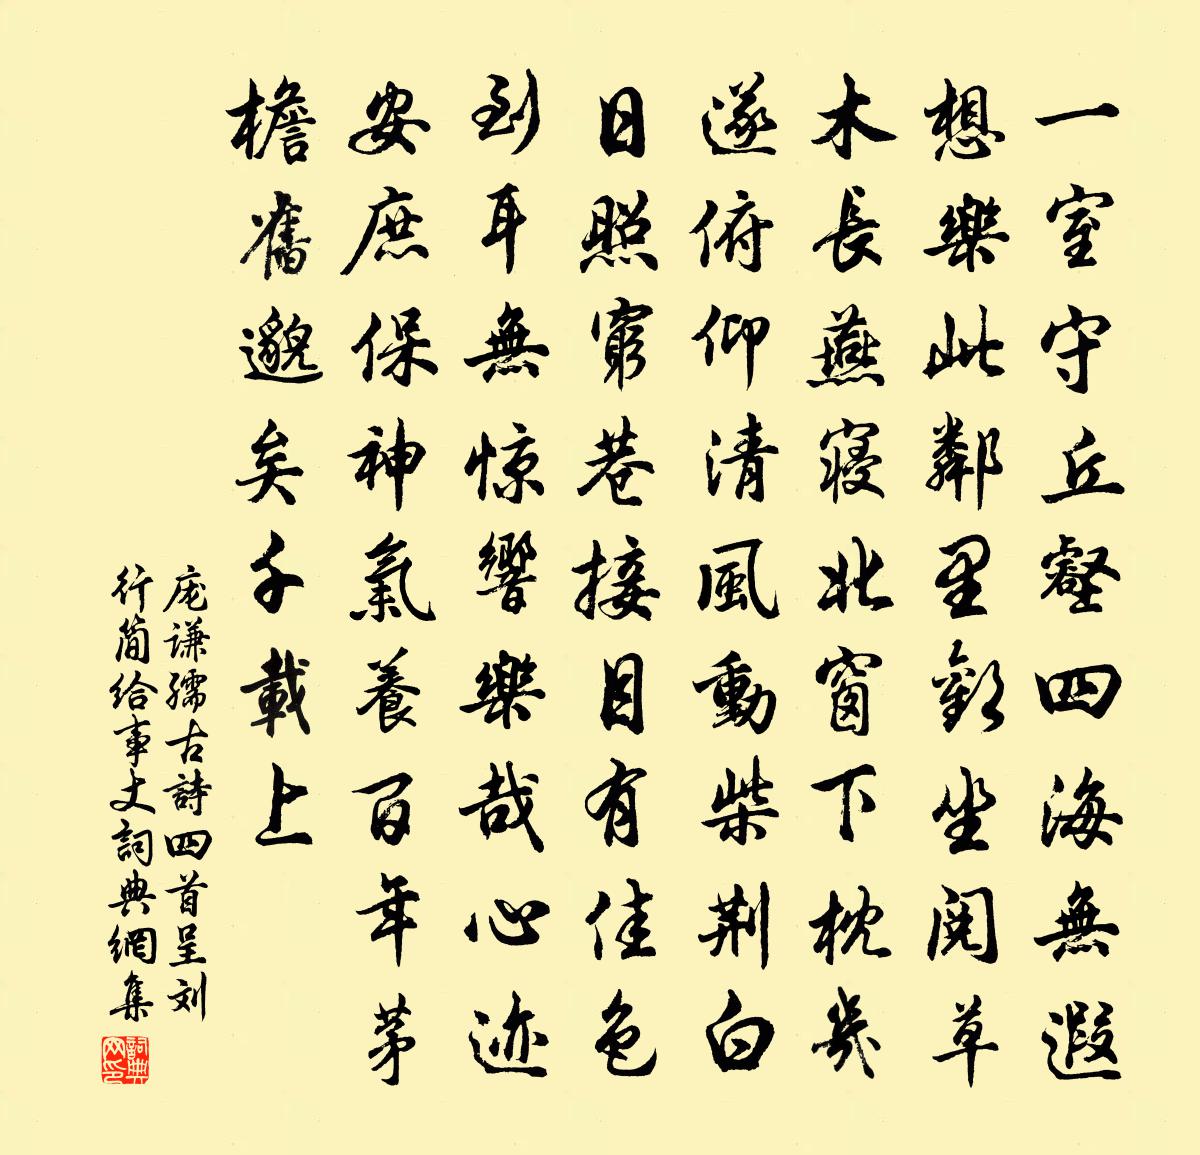 一室守丘壑四海無遐
想樂此鄰里歡坐閱草
木長燕寢北窗下枕幾
遂俯仰清風動柴荆白
日照窮巷接目有佳色
到耳無惊響樂哉心迹
安庶保神氣養百年茅
檐舊邈矣千載上
庞谦孺古詩四首呈刘
行简给事丈詞典網集
詞典网印